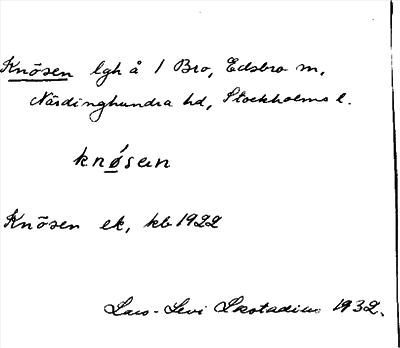 Knösen lgh å 1 Bro, Edsbro sn,
Närdinghundra hd, Stockholms l.
knǿsen
Knösen ek, kb 1922
Lars-Levi Læstadius 1932.